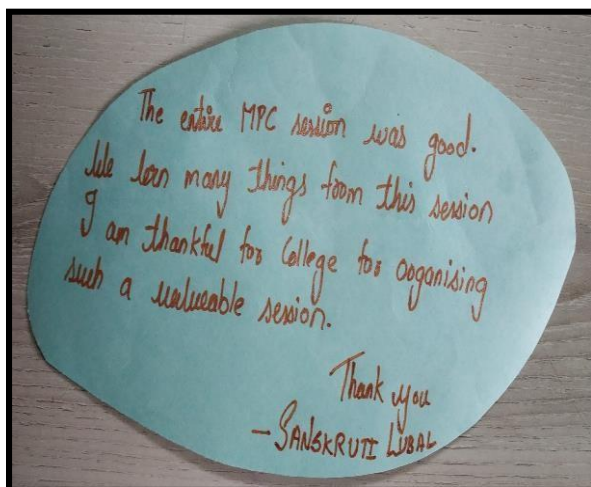 The entire MPC session was good.
We lern many things from this session
I am thankful for College for organising
such a valueable session.
Thank you
- SANSKRUTI LUBAL